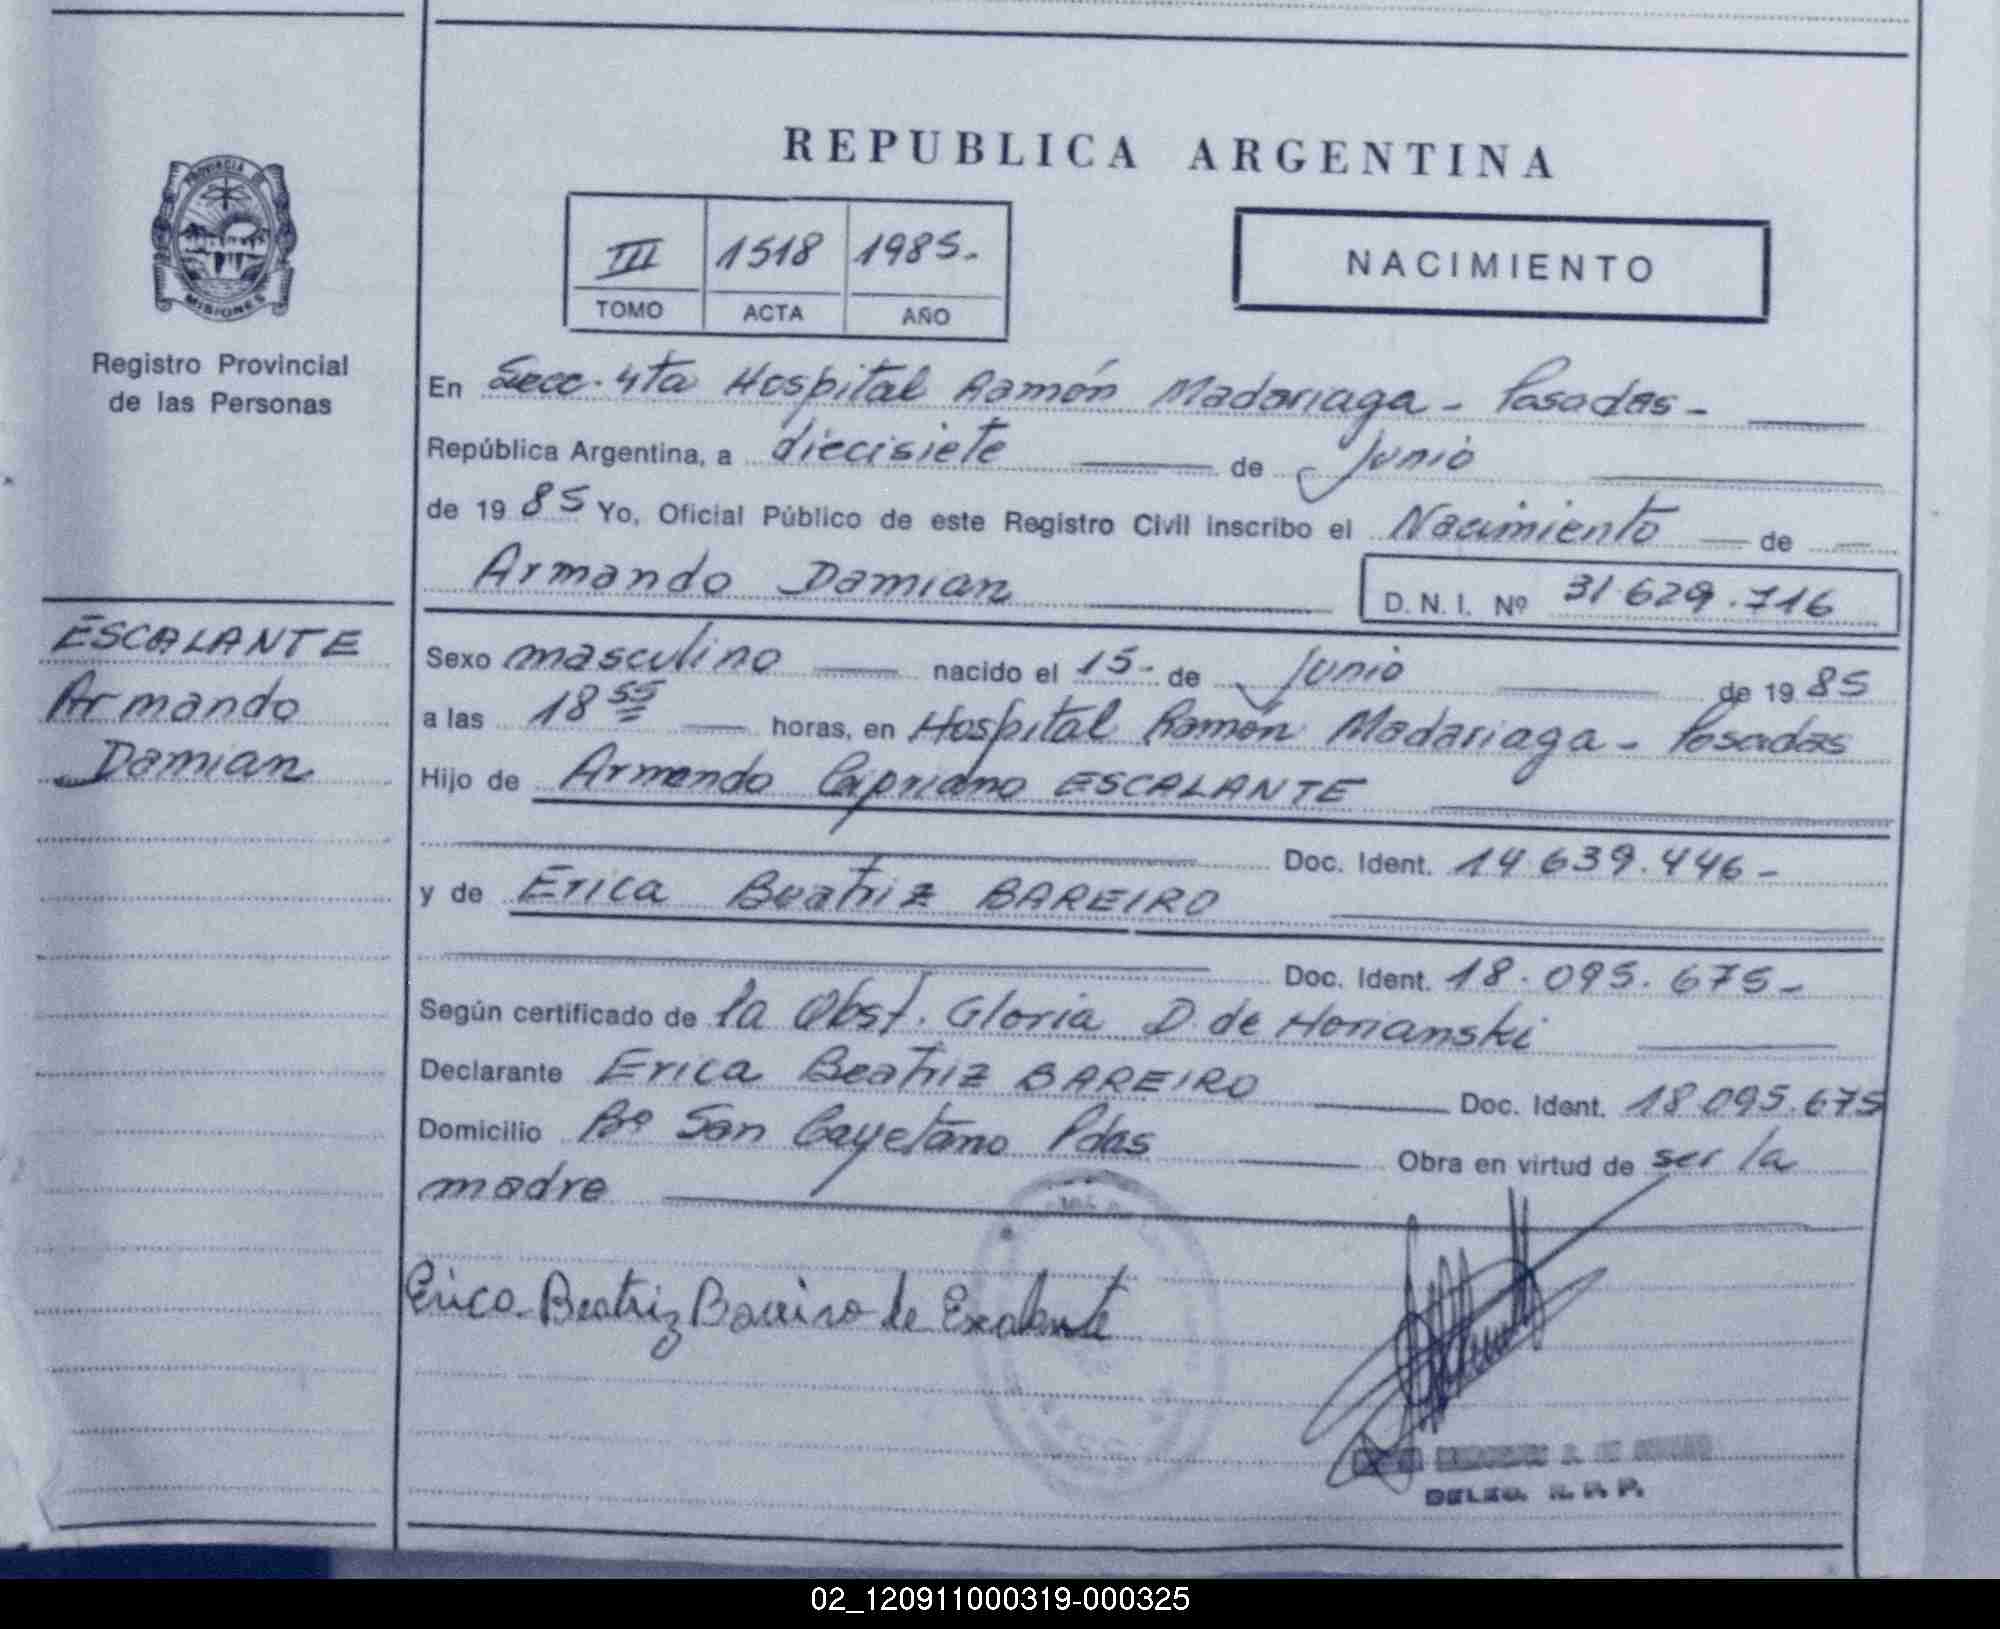 REPUBLICA ARGENTINA
PROVINCIA DE
MISIONES
III 1518 1985.-
TOMO ACTA AÑO
NACIMIENTO
Registro Provincial
de las Personas
En Secc. 4ta Hospital Ramón Madariaga - Posadas -
República Argentina, a diecisiete de Junio
de 1985 Yo, Oficial Público de este Registro Civil inscribo el Nacimiento de
Armando Damian D. N. I. Nº 31.629.716
ESCALANTE
Armando
Damian
Sexo masculino nacido el 15- de Junio de 1985
a las 18 55 horas, en Hospital Ramón Madariaga - Posadas
Hijo de Armando Cipriano ESCALANTE
Doc. Ident. 14.639.446-
y de Erica Beatriz BAREIRO
Doc. Ident. 18.095.675-
Según certificado de la Obst. Gloria D. de Horianski
Declarante Erica Beatriz BAREIRO Doc. Ident. 18.095.675
Domicilio Bº San Cayetano Pdas Obra en virtud de ser la
madre
Erica Beatriz Bareiro de Escalante
DELEG. R. P. P.
02_120911000319-000325